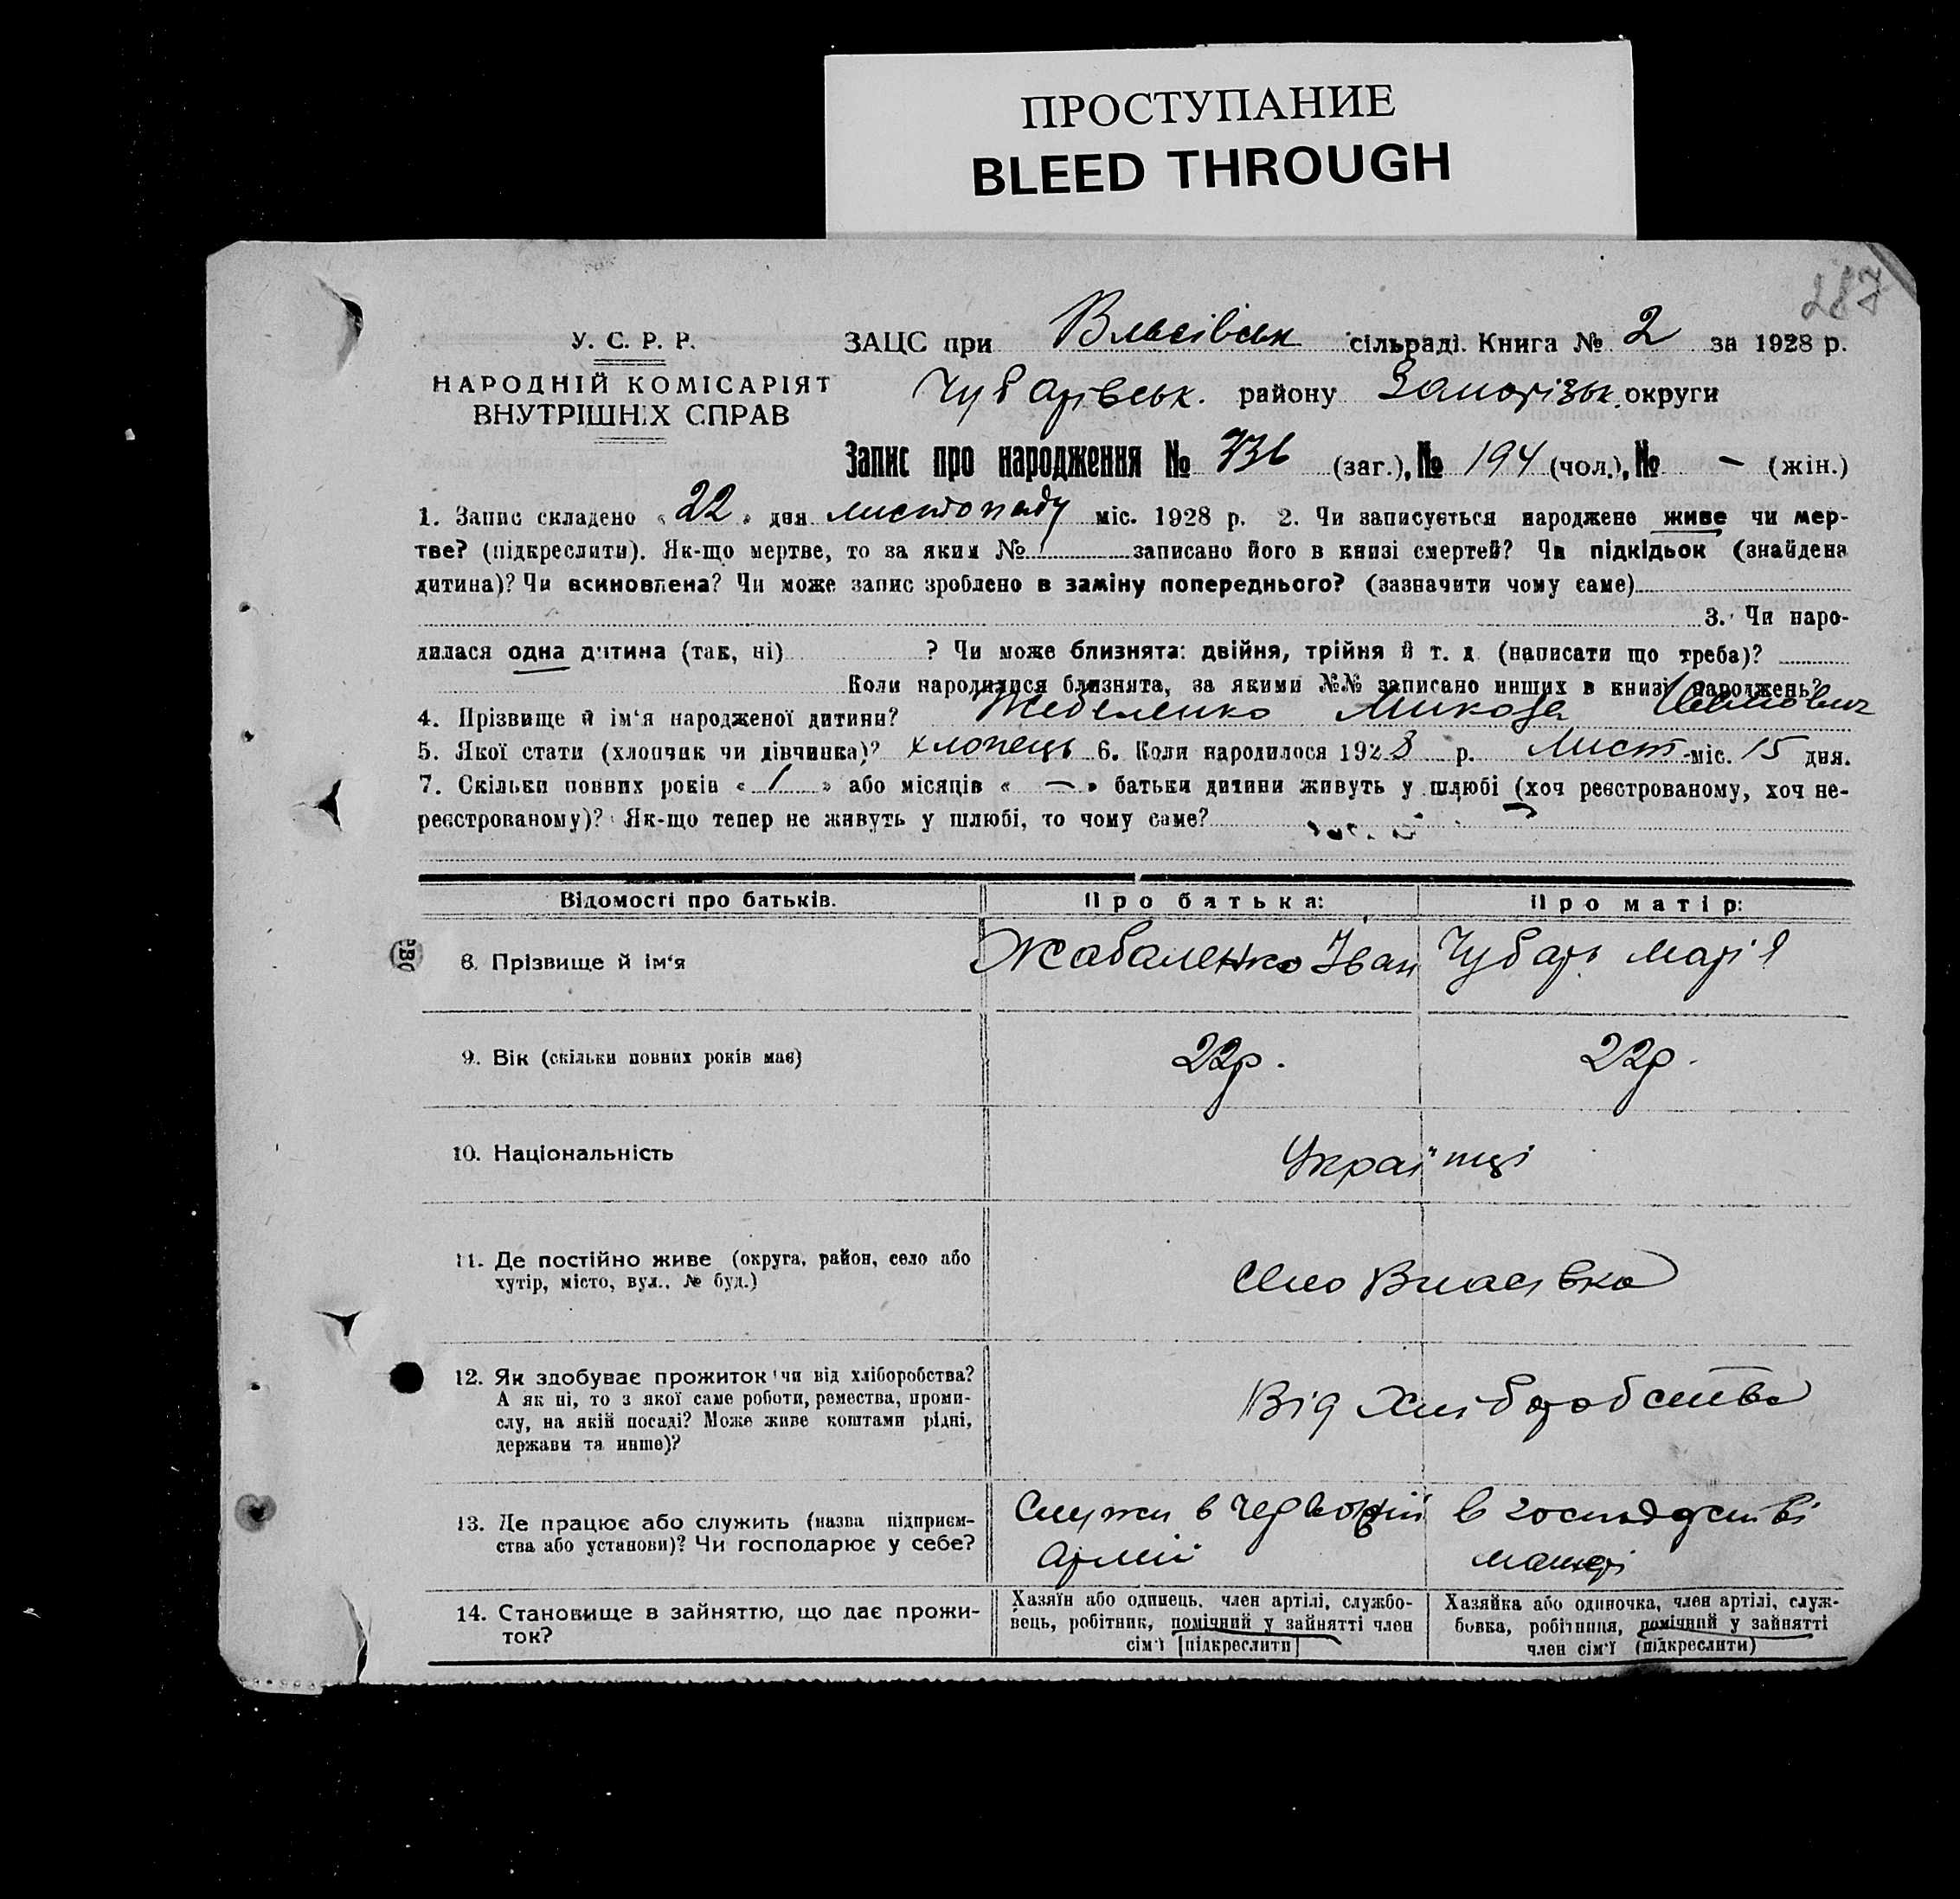 ПРОСТУПАНИЕ
BLEED THROUGH
287
У. С. Р. Р.
НАРОДНІЙ КОМІСАРІЯТ
ВНУТРІШНІХ СПРАВ
ЗАЦС при Власівськ сільраді. Книга № 2 за 1928 р.
Чубарівськ. району Запорізьк. округи
Запис про народження № 336 (заг.), № 194 (чол.), № – (жін.)
1. Запис складено « 22 » дня листопаду міс. 1928 р. 2. Чи записується народжене живе чи мер-
тве? (підкреслити). Як-що мертве, то за яким № записано його в книзі смертей? Чи підкідьок (знайдена
дитина)? Чи всиновлена? Чи може запис зроблено в заміну попереднього? (зазначити чому саме)
3. Чи наро-
дилася одна дитина (так, ні) ? Чи може близнята: двійня, трійня й т. д. (написати що треба)?
Коли народилися близнята, за якими №№ записано инших в книзі народжень?
4. Прізвище й ім'я народженої дитини? Жебеленко Микола Іванович
5. Якої стати (хлопчик чи дівчинка)? хлопець 6. Коли народилося 1928 р. Лист міс. 15 дня.
7. Скільки повних років « 1 » або місяців « — » батьки дитини живуть у шлюбі (хоч реєстрованому, хоч не-
реєстрованому)? Як-що тепер не живуть у шлюбі, то чому саме?
Відомості про батьків. Про батька: Про матір:
8. Прізвище й ім'я Жабаленко Іван Чубарь Марія
9. Вік (скільки повних років має) 22р. 22р.
10. Національність Українці
11. Де постійно живе (округа, район, село або
хутір, місто, вул., № буд.) Село Власівка
12. Як здобуває прожиток чи від хліборобства?
А як ні, то з якої саме роботи, ремества, проми-
слу, на якій посаді? Може живе коштами рідні,
держави та инше)? Від Хліборобства
13. Де працює або служить (назва підприєм-
ства або установи)? Чи господарює у себе?
Служи в Червоній
Армії
в господарстві
матері
14. Становище в зайняттю, що дає прожи-
ток?
Хазяїн або одинець, член артілі, службо-
вець, робітник, помічний у зайнятті член
сім'ї [підкреслити]
Хазяйка або одиночка, член артілі, служ-
бовка, робітниця, помічний у зайнятті
член сім'ї (підкреслити)